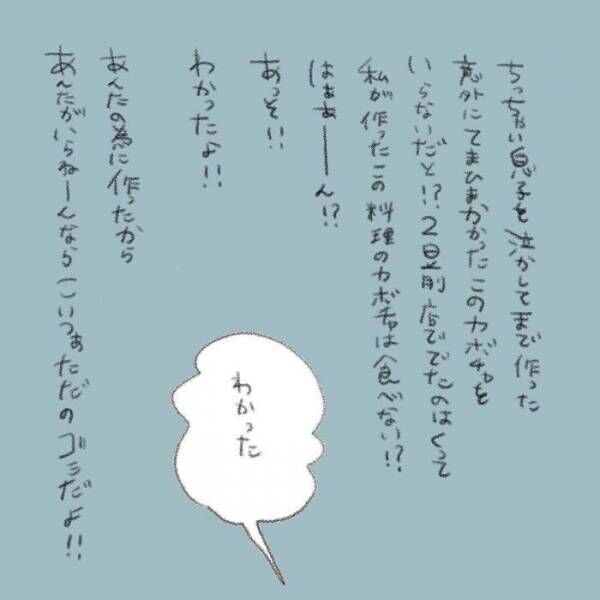 ちっちゃい息子を泣かしてまで作った
意外にてまひまかかったこのカボチャを
いらないだと!?2日前店ででたのはくって
私が作ったこの料理のカボチャは食べない!?
はぁぁーーん!?
あっそ!!
わかったよ!!
あんたの為に作ったから
あんたがいらねーんならこいつぁただのゴミだよ!!
わかった